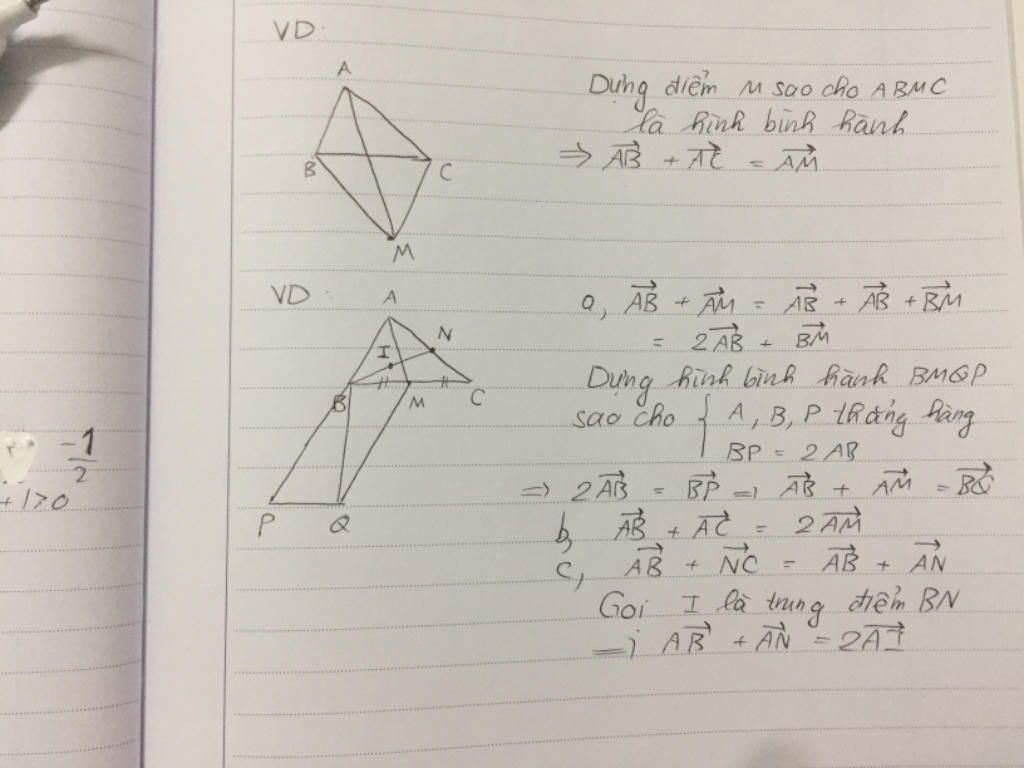 VD:
A
B
C
M
Dựng điểm M sao cho ABMC
là hình bình hành
⇒ \overrightarrow{AB} + \overrightarrow{AC} = \overrightarrow{AM}
VD:
A
N
I
B
M
C
P
Q
a, \overrightarrow{AB} + \overrightarrow{AM} = \overrightarrow{AB} + \overrightarrow{AB} + \overrightarrow{BM}
= 2\overrightarrow{AB} + \overrightarrow{BM}
Dựng hình bình hành BMQP
sao cho { A, B, P thẳng hàng
BP = 2AB
⇒ 2\overrightarrow{AB} = \overrightarrow{BP} ⇒ \overrightarrow{AB} + \overrightarrow{AM} = \overrightarrow{BQ}
b, \overrightarrow{AB} + \overrightarrow{AC} = 2\overrightarrow{AM}
c, \overrightarrow{AB} + \overrightarrow{NC} = \overrightarrow{AB} + \overrightarrow{AN}
Gọi I là trung điểm BN
⇒ \overrightarrow{AB} + \overrightarrow{AN} = 2\overrightarrow{AI}
-1/2
+ 1 > 0